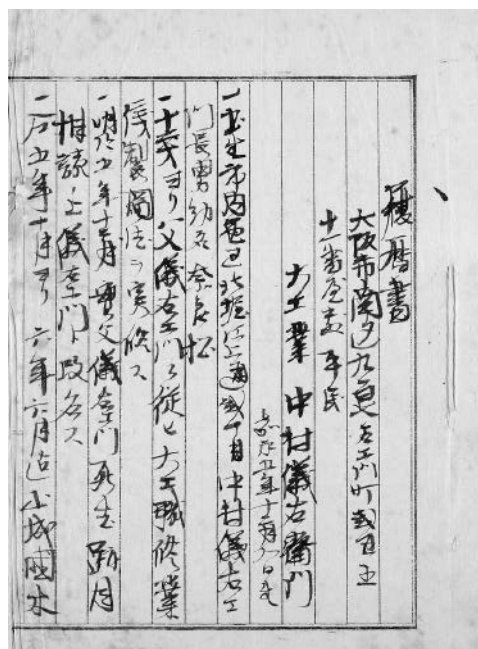 履歴書
大阪市南区九良左エ門町弐百五
十一番屋敷 平民
大工業 中村儀右衛門
嘉永五年十二月 日生
一出生市内西区北堀江上通弐丁目中村儀右エ
門長男幼名奈良松
一十才ヨリ父儀右エ門ニ従ヒ大工職修業
製図法ヲ実修ス
一明治五年十二月実父儀右エ門死去翌月
相談ノ上儀右エ門ト改名ス
一仝五年十月ヨリ六年六月迄山城国木